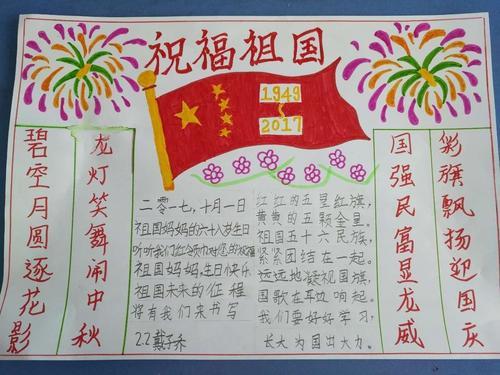 祝福祖国
1949
2017
碧空月圆逐花影
龙灯笑舞闹中秋
二零一七,十月一日
祖国妈妈的六十八岁生日
听听我们红领巾对您的祝福
祖国妈妈,生日快乐
祖国未来的征程
将有我们来书写
2.2 戴子
红红的五星红旗,
黄黄的五颗金星。
祖国五十六民族,
紧紧团结在一起。
远远地凝视国旗,
国歌在耳边响起。
我们要好好学习,
长大为国出大力。
国强民富显龙威
彩旗飘扬迎国庆